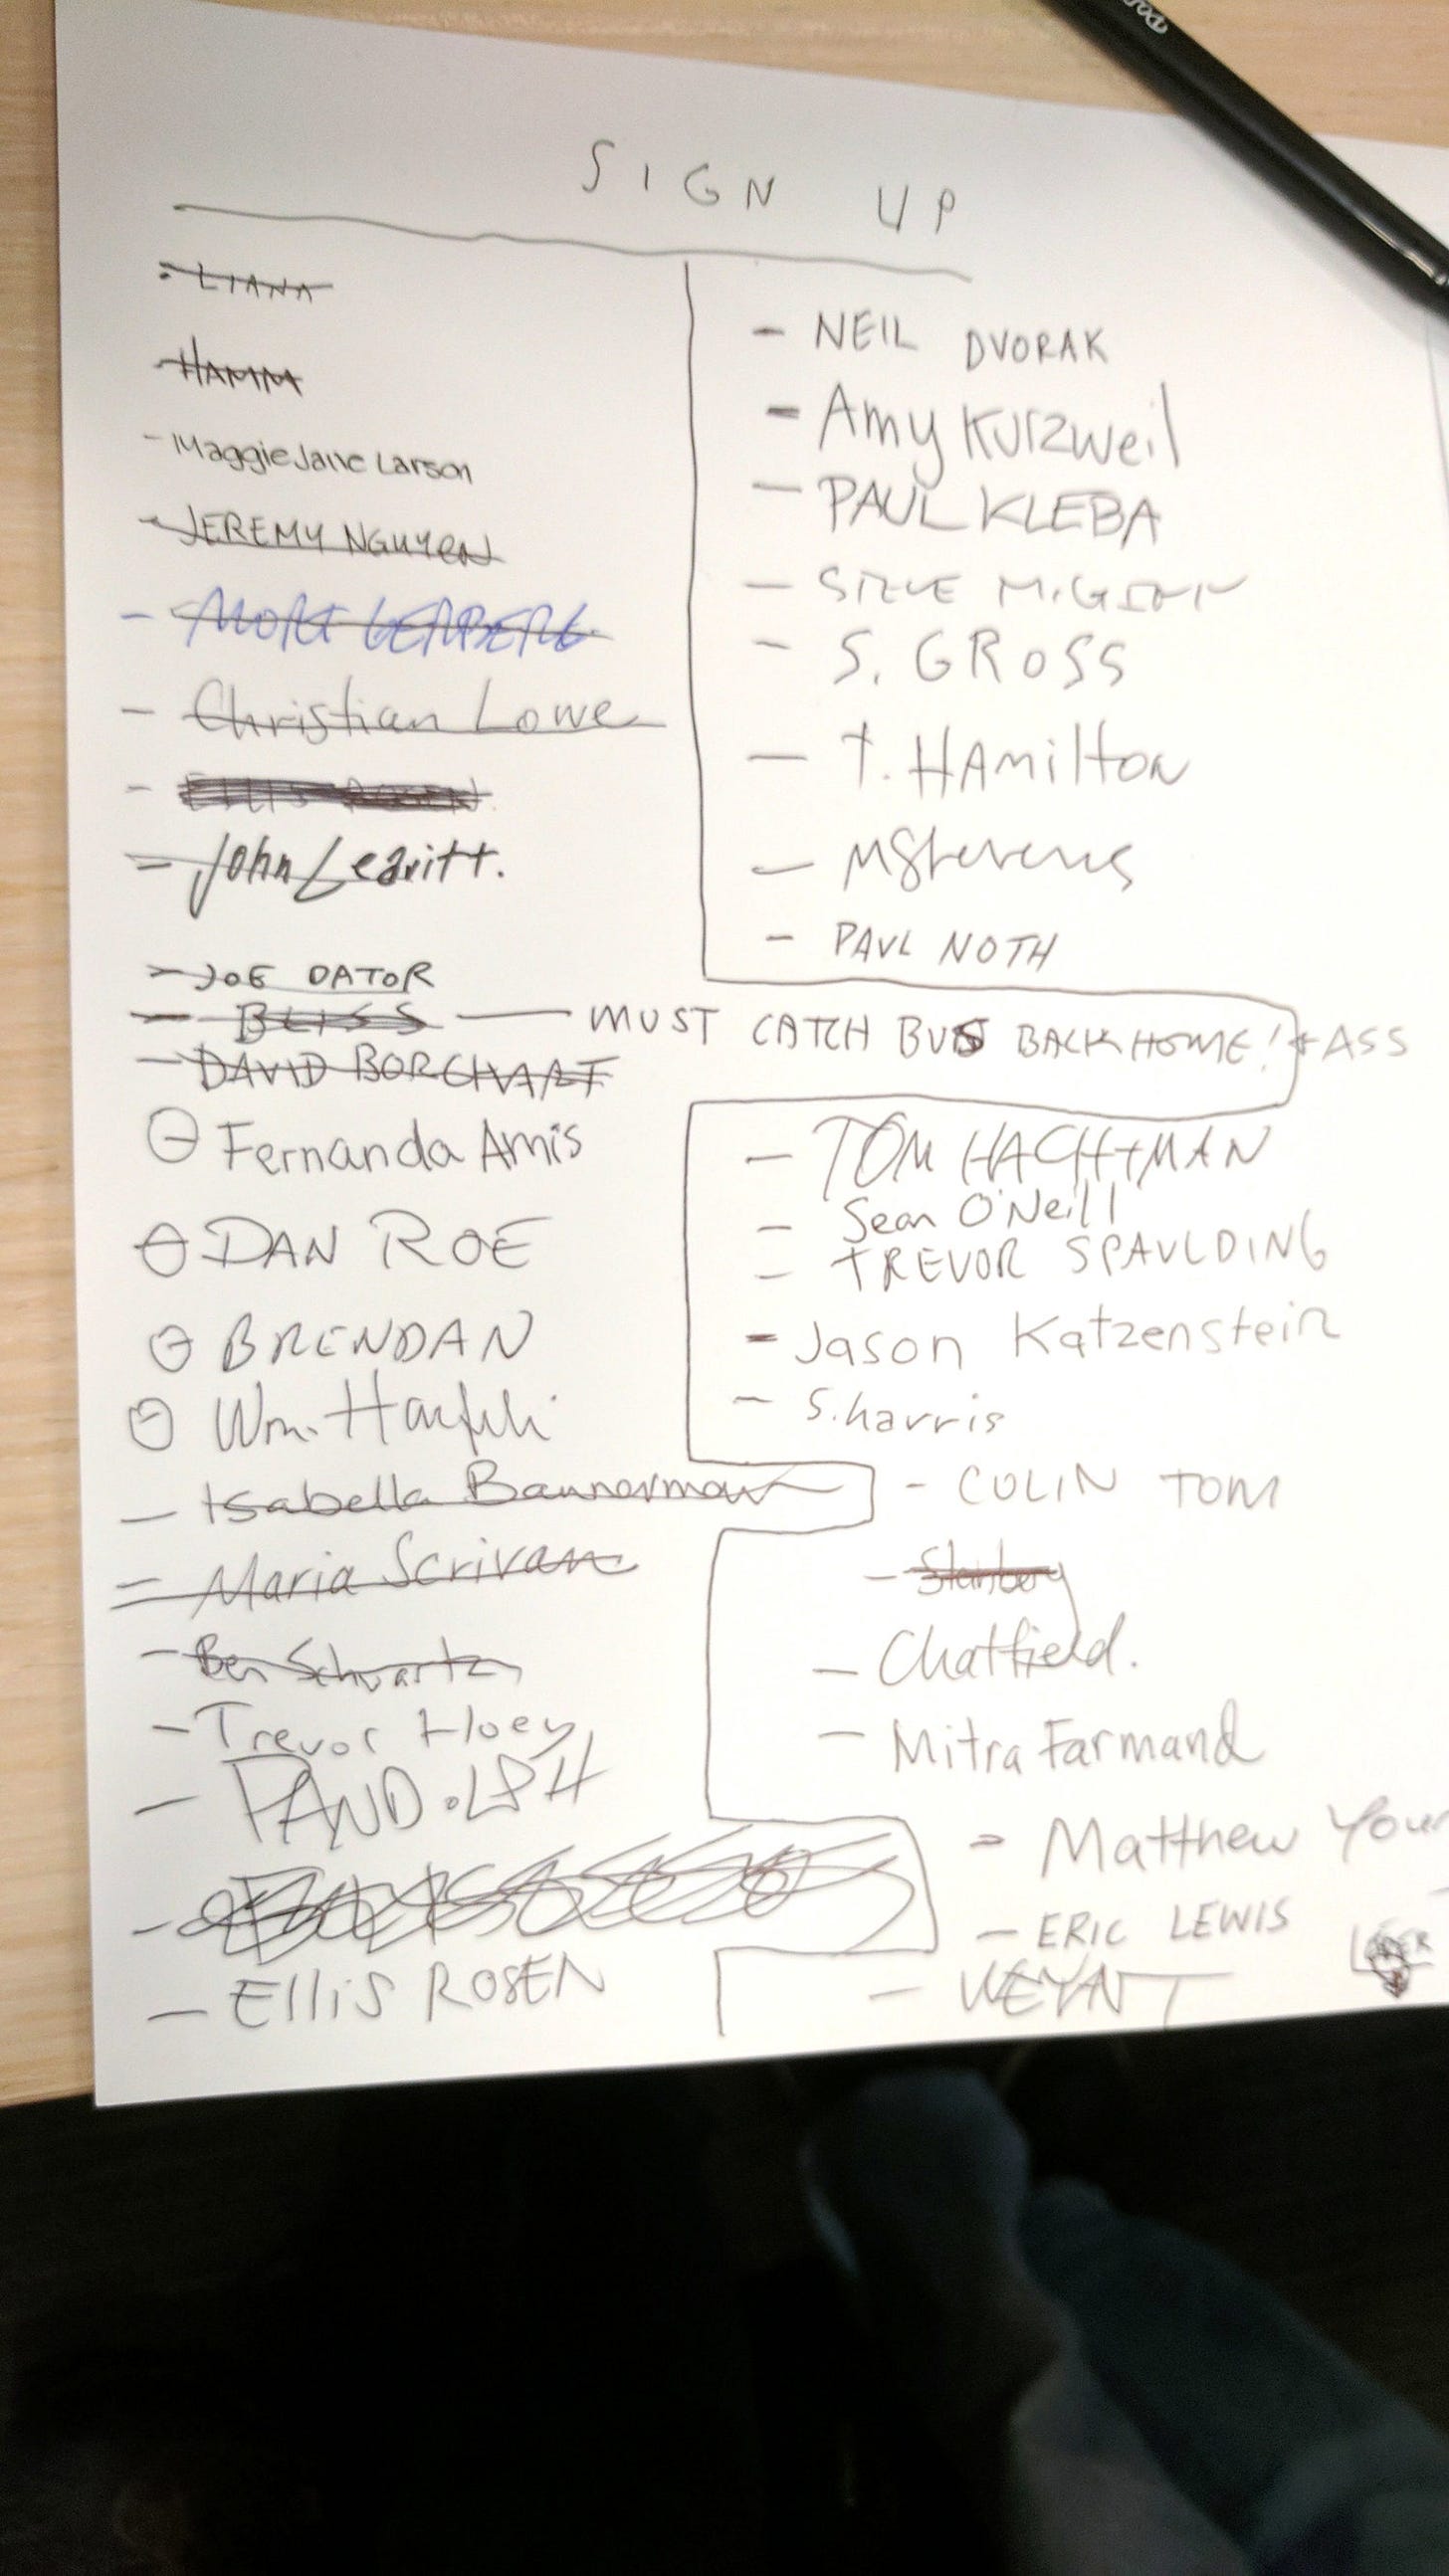 SIGN UP
LIANA
HAMM
- Maggie Jane Larson
- JEREMY NGUYEN
- MORT GERBERG
- Christian Lowe
-
- John Leavitt.
- JOE DATOR
- BLISS — MUST CATCH BUS BACK HOME! + ASS
- DAVID BORCHART
Fernanda Amis
DAN ROE
BRENDAN
Wm.
- Isabella Bannerman
- Maria Scrivan
- Ben Schwartz
- Trevor Hoey
-
-
- Ellis ROSEN
- NEIL DVORAK
- Amy Kurzweil
- PAUL KLEBA
- STEVE
- S. GROSS
- T. HAMilTON
- MStevens
- PAUL NOTH
- TOM HACHTMAN
- Sean O'Neill
- TREVOR SPAULDING
- Jason Katzenstein
- S. harris
- COLIN TOM
-
- Chatfield.
- Mitra Farmand
- Matthew Your
- ERIC LEWIS
- WEYANT